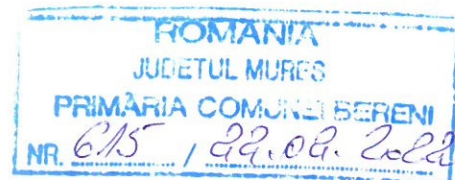 ROMÂNIA
JUDEȚUL MUREȘ
PRIMĂRIA COMUNEI BERENI
NR. 615 / 22.02.2022